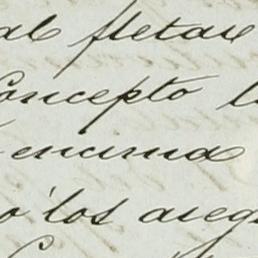 al fletar
Concepto l
encima
o los aseg